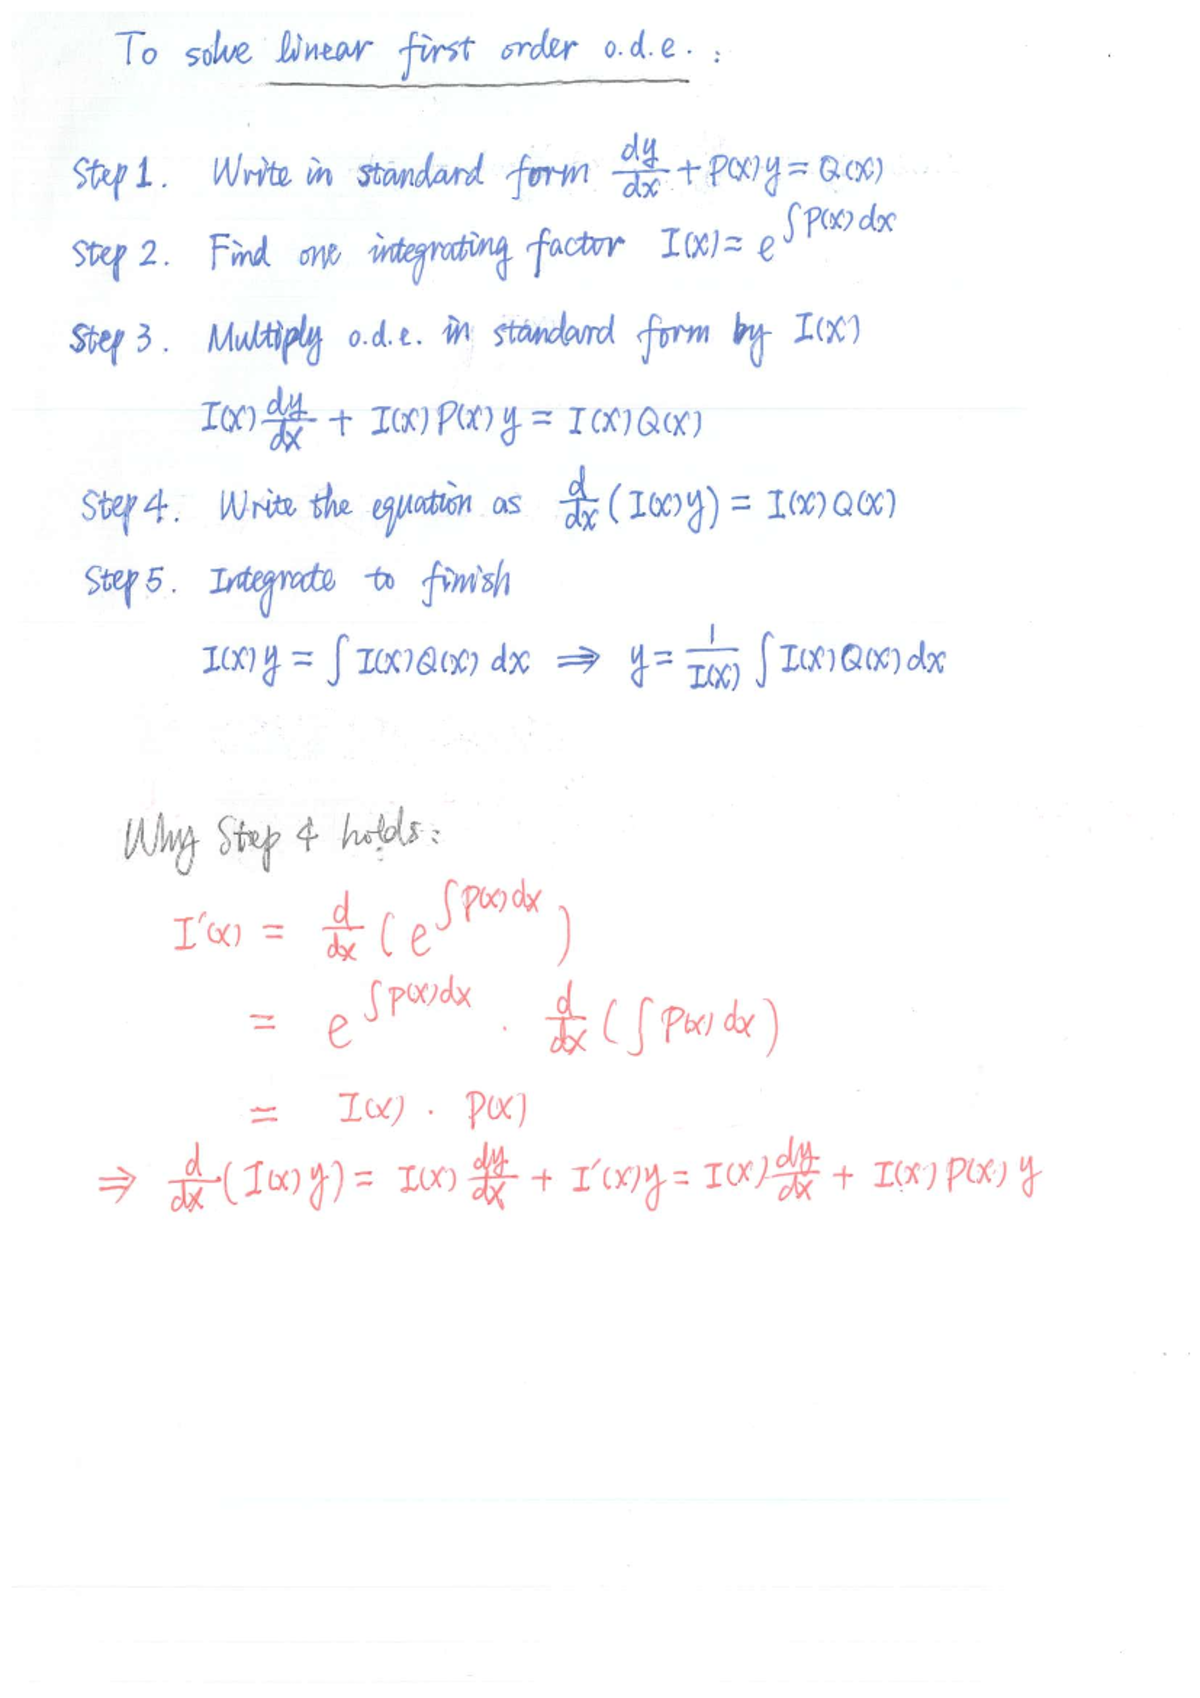 To solve linear first order o.d.e. :
Step 1. Write in standard form dy/dx + P(x)y = Q(x)
Step 2. Find one integrating factor I(x) = e^∫P(x)dx
Step 3. Multiply o.d.e. in standard form by I(x)
I(x) dy/dx + I(x)P(x)y = I(x)Q(x)
Step 4. Write the equation as d/dx (I(x)y) = I(x)Q(x)
Step 5. Integrate to finish
I(x)y = ∫I(x)Q(x) dx ⇒ y = 1/I(x) ∫I(x)Q(x)dx
Why Step 4 holds:
I'(x) = d/dx (e^∫P(x)dx)
= e^∫P(x)dx · d/dx (∫P(x)dx)
= I(x) · P(x)
⇒ d/dx (I(x)y) = I(x) dy/dx + I'(x)y = I(x) dy/dx + I(x)P(x)y